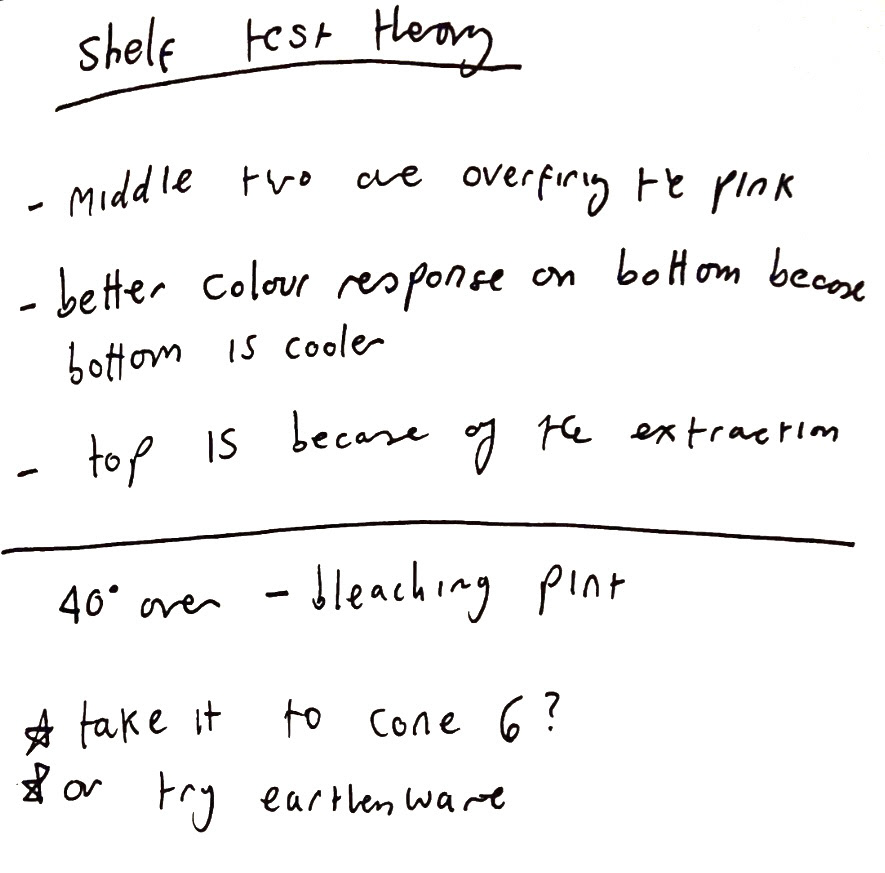 shelf test theory
- middle two are overfiring the pink
- better colour response on bottom because
bottom is cooler
- top is because of the extraction
40° over - bleaching pink
☆ take it to cone 6?
☆ or try earthenware